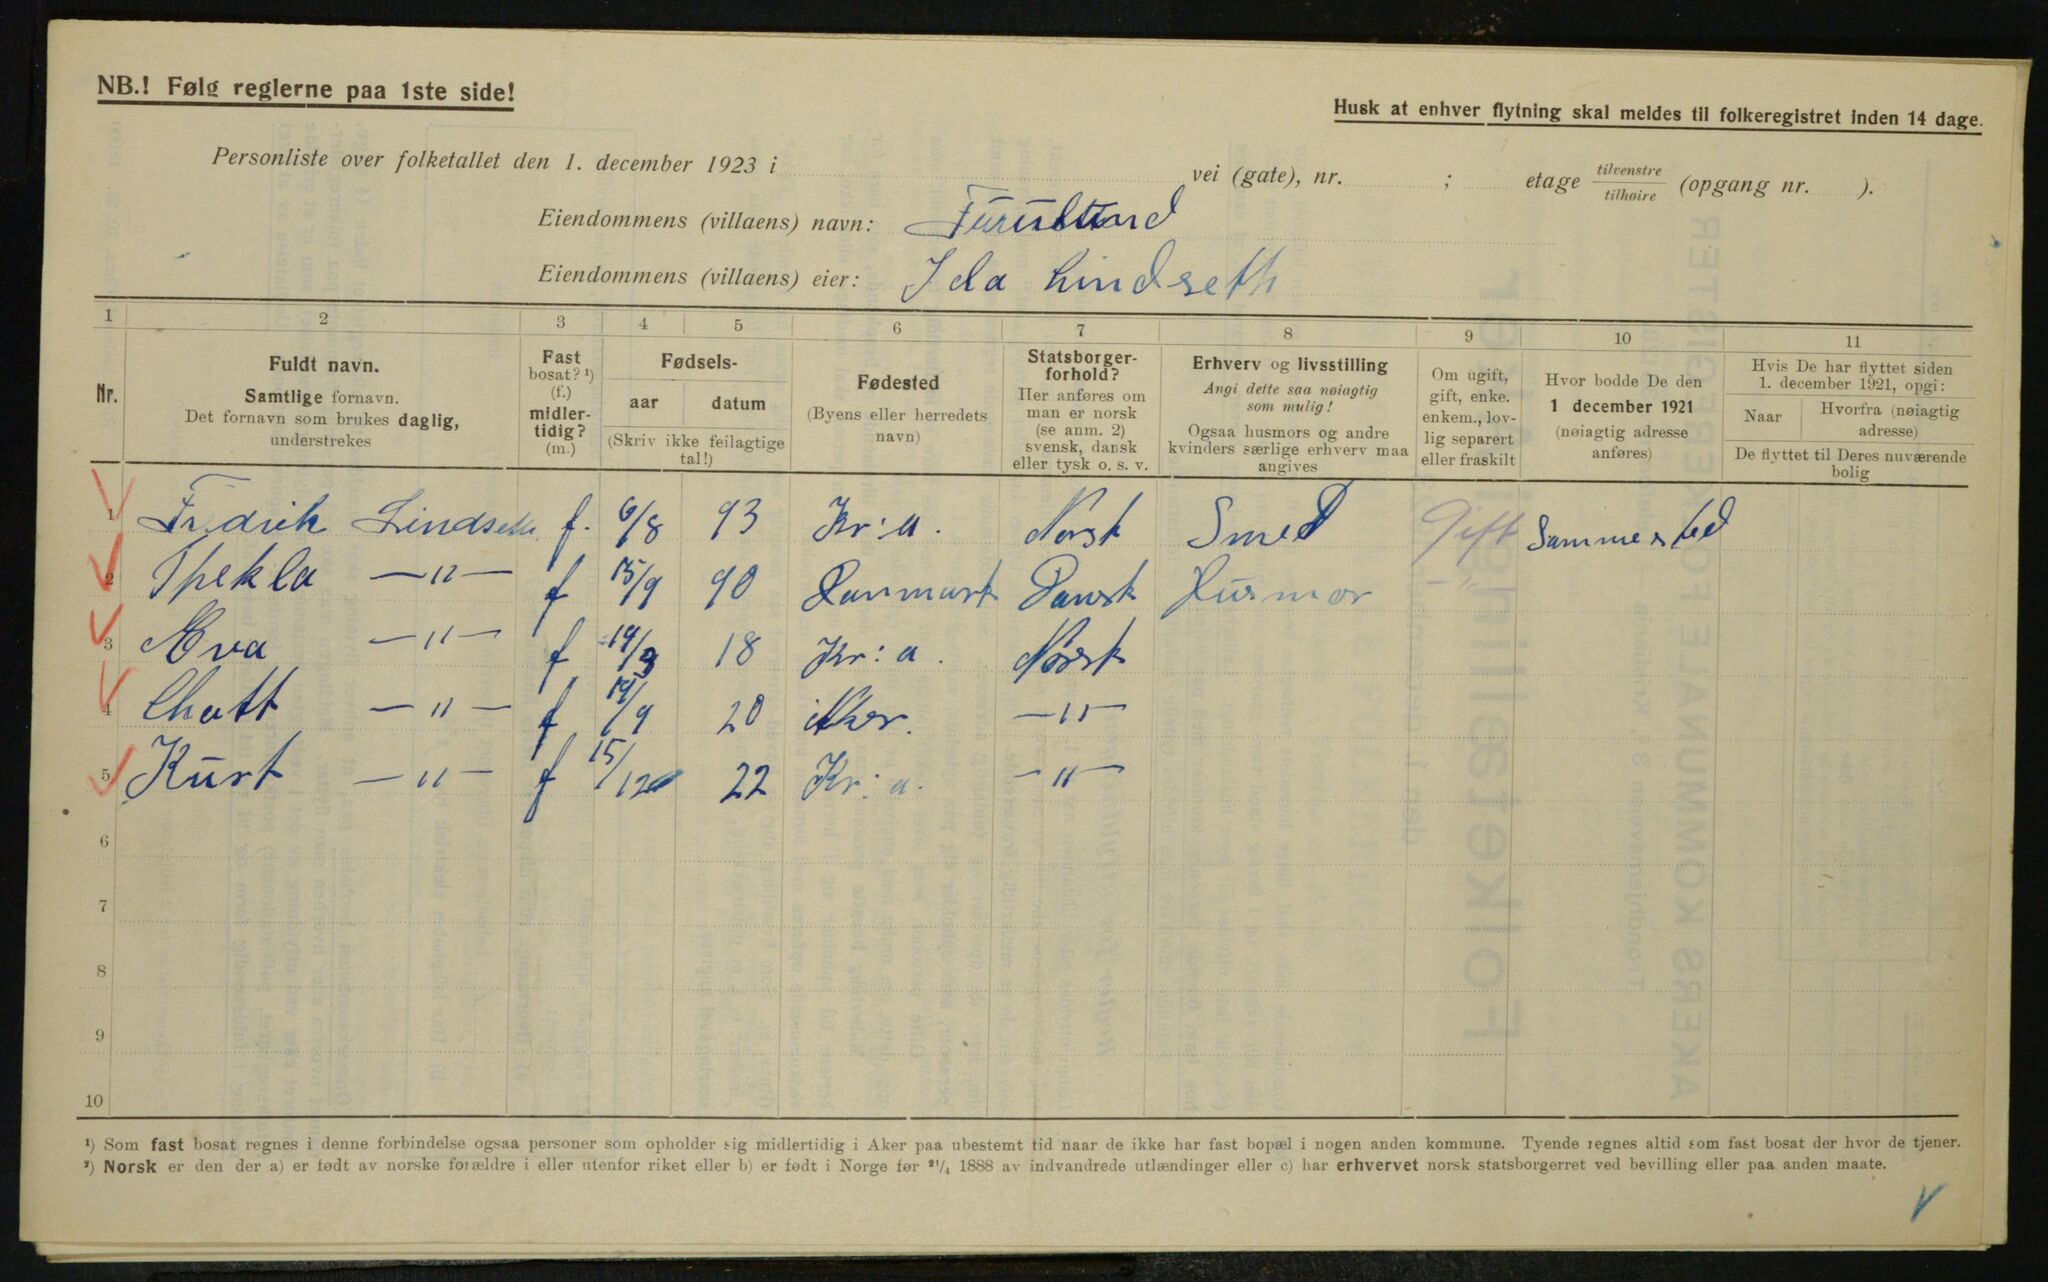 NB.! Følg reglerne paa 1ste side!
Husk at enhver flytning skal meldes til folkeregistret inden 14 dage.
Personliste over folketallet den 1. december 1923 i vei (gate), nr. ; etage tilvenstre tilhøire (opgang nr. ).
Eiendommens (villaens) navn: Furulund
Eiendommens (villaens) eier: Ida Lindseth
1 2 3 4 5 6 7 8 9 10 11
Nr.
Fuldt navn.
Samtlige fornavn.
Det fornavn som brukes daglig,
understrekes
Fast
bosat? ¹)
(f.)
midler-
tidig?
(m.)
Fødsels-
aar datum
(Skriv ikke feilagtige
tal!)
Fødested
(Byens eller herredets
navn)
Statsborger-
forhold?
Her anføres om
man er norsk
(se anm. 2)
svensk, dansk
eller tysk o. s. v.
Erhverv og livsstilling
Angi dette saa nøiagtig
som mulig!
Ogsaa husmors og andre
kvinders særlige erhverv maa
angives
Om ugift,
gift, enke.
enkem., lov-
lig separert
eller fraskilt
Hvor bodde De den
1 december 1921
(nøiagtig adresse
anføres)
Hvis De har flyttet siden
1. december 1921, opgi:
Naar
Hvorfra (nøiagtig
adresse)
De flyttet til Deres nuværende
bolig
1 Fredrik Lindseth f. 6/8 93 Kr:a. Norsk Smed Gift Sammested
2 Thekla —"— f 15/9 90 Danmark Dansk Husmor "
3 Eva —"— f 14/3 18 Kr:a. Norsk
4 Chatt —"— f 19/9 20 Aker. —"—
5 Kurt —"— f 15/12 22 Kr:a. —"—
6
7
8
9
10
¹) Som fast bosat regnes i denne forbindelse ogsaa personer som opholder sig midlertidig i Aker paa ubestemt tid naar de ikke har fast bopæl i nogen anden kommune. Tyende regnes altid som fast bosat der hvor de tjener.
²) Norsk er den der a) er født av norske forældre i eller utenfor riket eller b) er født i Norge før ²¹/₄ 1888 av indvandrede utlændinger eller c) har erhvervet norsk statsborgerret ved bevilling eller paa anden maate.